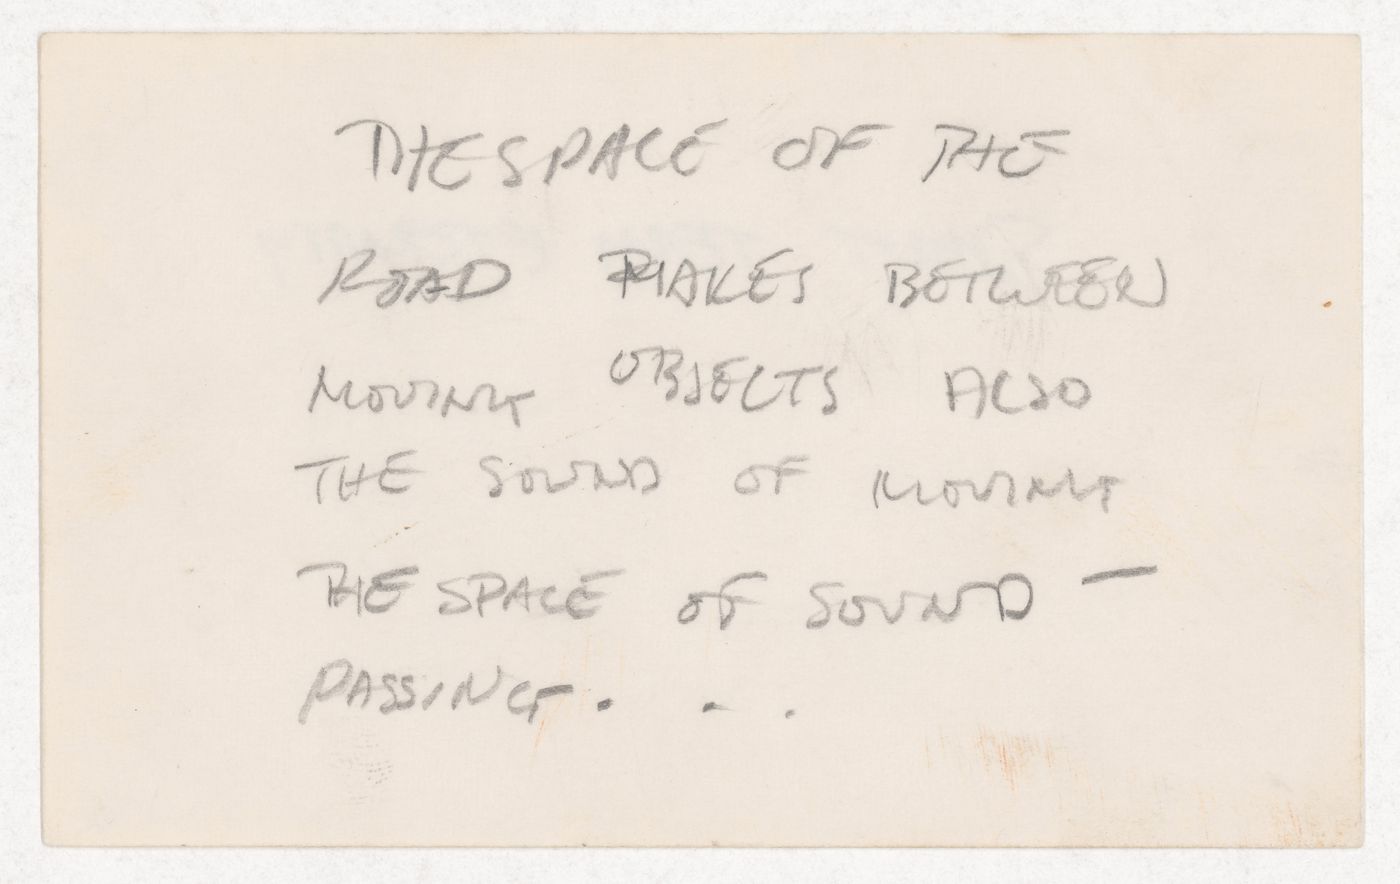 THE SPACE OF THE
ROAD MAKES BETWEEN
MOVING OBJECTS ALSO
THE SOUND OF MOVING
THE SPACE OF SOUND —
PASSING. . .